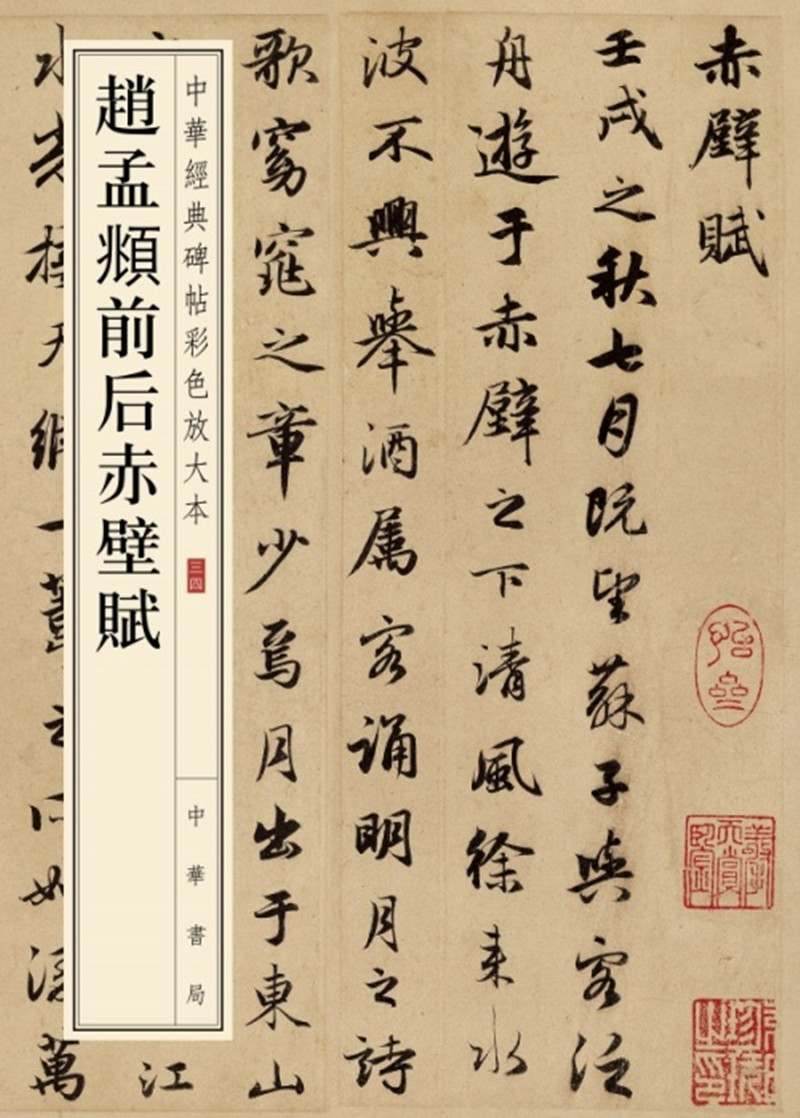 赤壁賦
壬戌之秋七月既望蘇子與客泛
舟遊于赤壁之下清風徐来水
波不興舉酒属客誦明月之詩
歌窈窕之章少焉月出于東山
中華經典碑帖彩色放大本
三四
中華書局
趙孟頫前后赤壁賦
江
水光接天縱一葦之所如淩萬